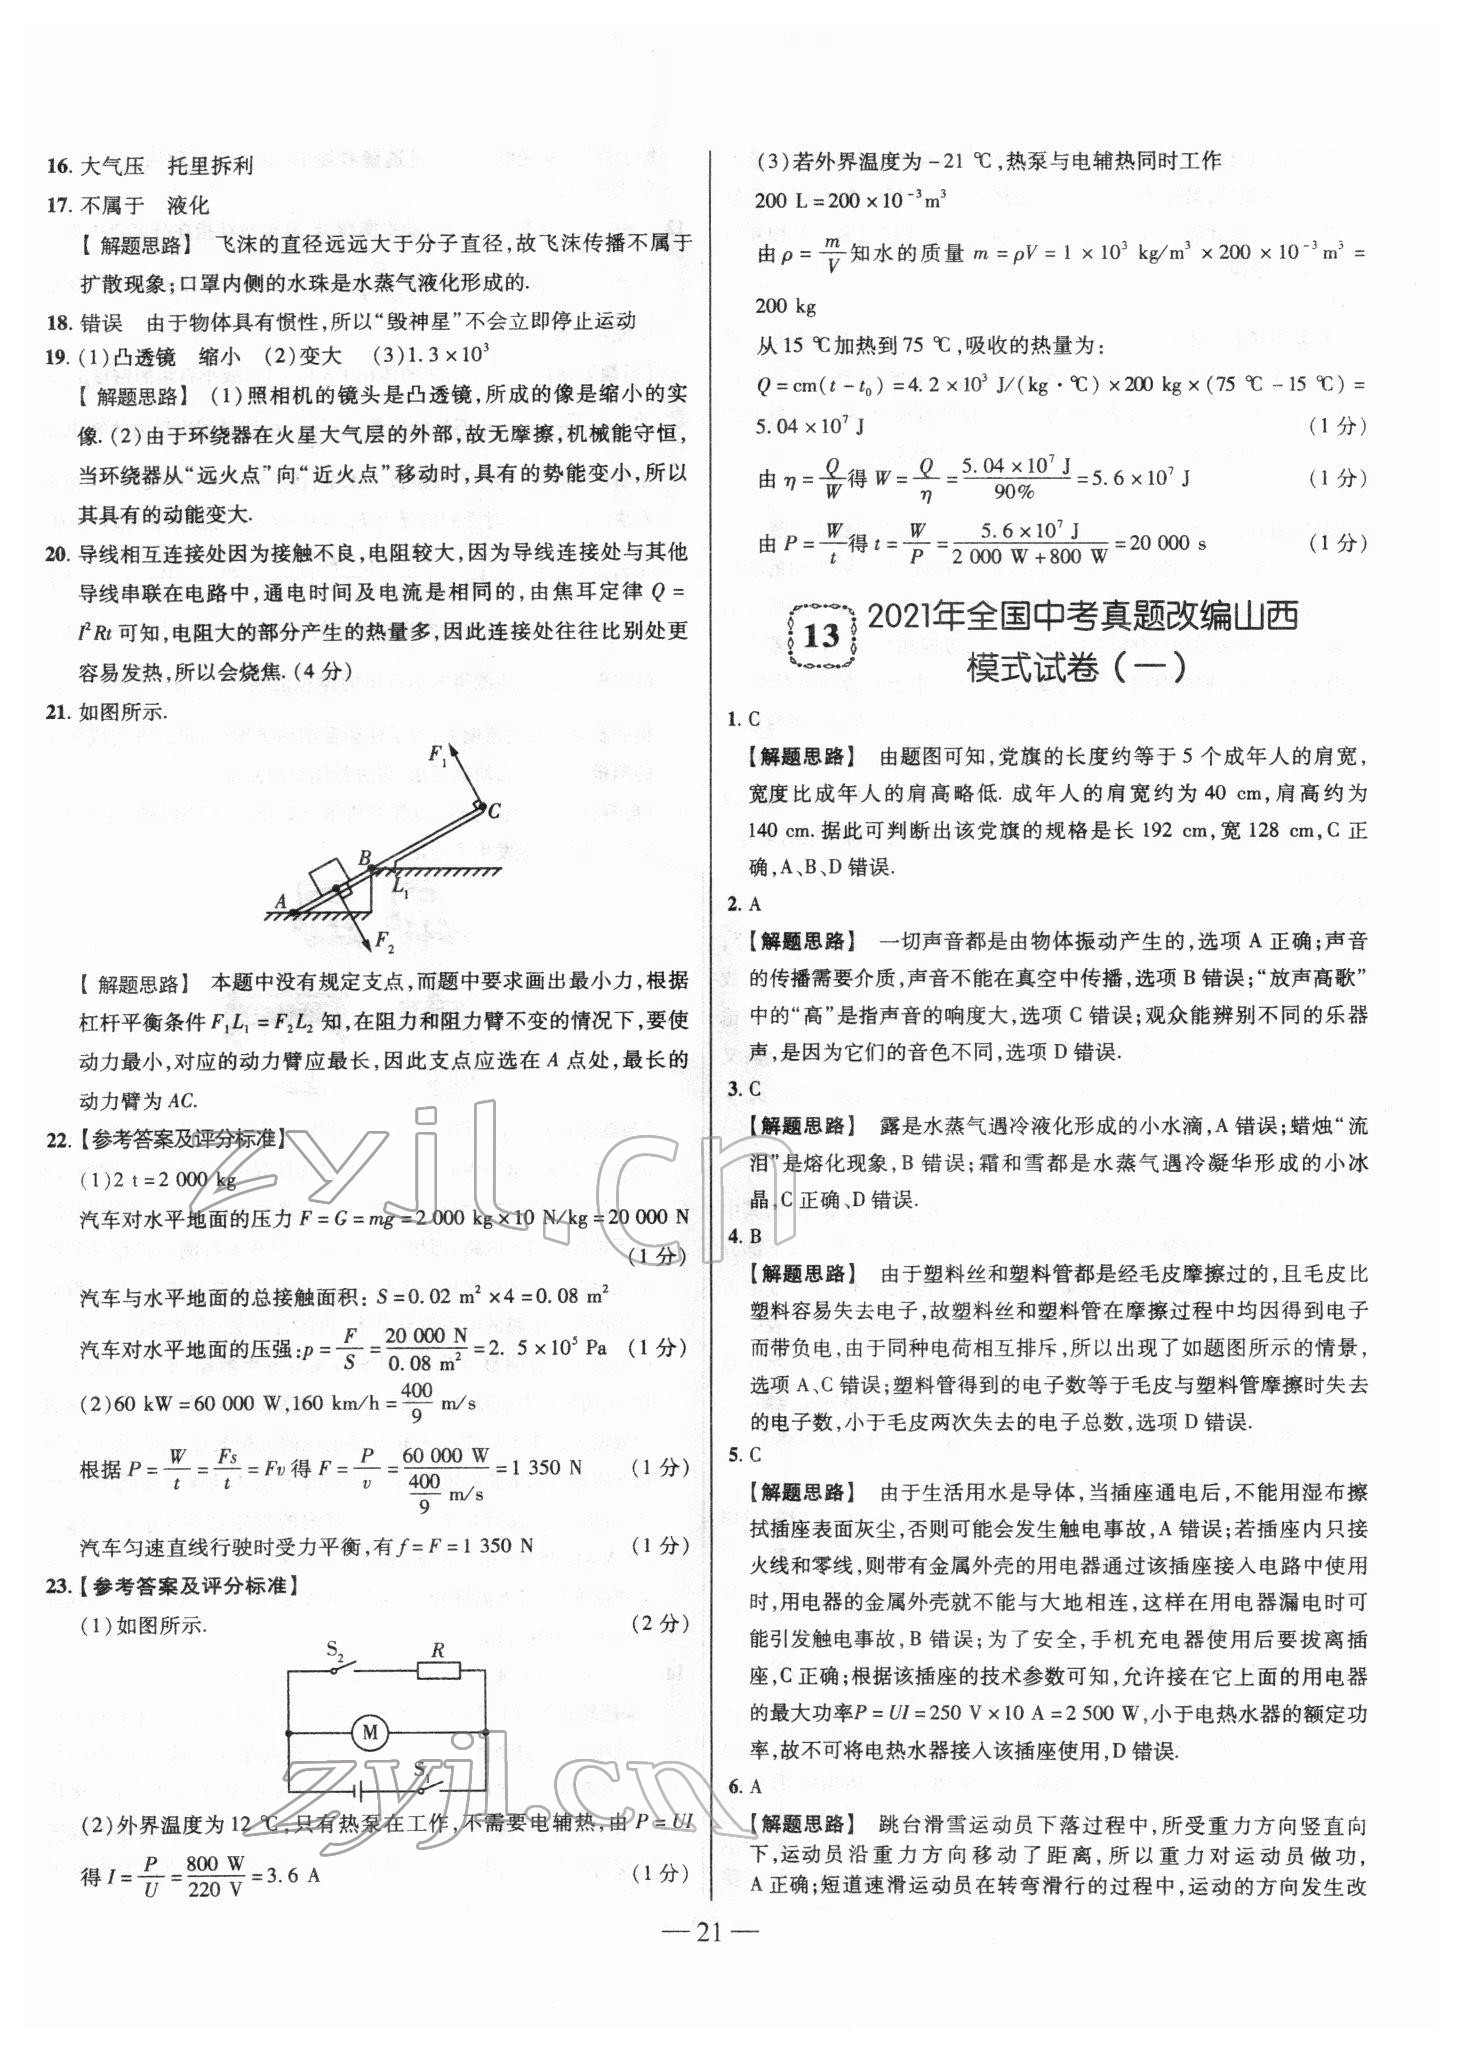 16. 大气压　托里拆利
17. 不属于　液化
【解题思路】　飞沫的直径远远大于分子直径,故飞沫传播不属于
扩散现象;口罩内侧的水珠是水蒸气液化形成的.
18. 错误　由于物体具有惯性,所以“毁神星”不会立即停止运动
19. (1)凸透镜　缩小　(2)变大　(3)1.3×10³
【解题思路】(1)照相机的镜头是凸透镜,所成的像是缩小的实
像.(2)由于环绕器在火星大气层的外部,故无摩擦,机械能守恒,
当环绕器从“远火点”向“近火点”移动时,具有的势能变小,所以
其具有的动能变大.
20. 导线相互连接处因为接触不良,电阻较大,因为导线连接处与其他
导线串联在电路中,通电时间及电流是相同的,由焦耳定律 Q =
I²Rt 可知,电阻大的部分产生的热量多,因此连接处往往比别处更
容易发热,所以会烧焦.(4 分)
21. 如图所示.
F₁
C
B
L₁
A
F₂
【解题思路】　本题中没有规定支点,而题中要求画出最小力,根据
杠杆平衡条件 F₁L₁ = F₂L₂ 知,在阻力和阻力臂不变的情况下,要使
动力最小,对应的动力臂应最长,因此支点应选在 A 点处,最长的
动力臂为 AC.
22.【参考答案及评分标准】
(1)2 t = 2 000 kg
汽车对水平地面的压力 F = G = mg = 2 000 kg × 10 N/kg = 20 000 N
(1 分)
汽车与水平地面的总接触面积: S = 0.02 m² × 4 = 0.08 m²
汽车对水平地面的压强: p = F/S = 20 000 N/0.08 m² = 2. 5 × 10⁵ Pa (1 分)
(2)60 kW = 60 000 W,160 km/h = 400/9 m/s
根据 P = W/t = Fs/t = Fv 得 F = P/v = 60 000 W/(400/9 m/s) = 1 350 N (1 分)
汽车匀速直线行驶时受力平衡,有 f = F = 1 350 N (1 分)
23.【参考答案及评分标准】
(1)如图所示. (2 分)
S₂
R
M
S₁
(2)外界温度为 12 ℃,只有热泵在工作,不需要电辅热,由 P = UI
得 I = P/U = 800 W/220 V = 3.6 A (1 分)
(3)若外界温度为 -21 ℃,热泵与电辅热同时工作
200 L = 200 × 10⁻³ m³
由 ρ = m/V 知水的质量 m = ρV = 1 × 10³ kg/m³ × 200 × 10⁻³ m³ =
200 kg
从 15 ℃加热到 75 ℃,吸收的热量为:
Q = cm(t - t₀) = 4.2 × 10³ J/(kg·℃) × 200 kg × (75 ℃ - 15 ℃) =
5.04 × 10⁷ J (1 分)
由 η = Q/W 得 W = Q/η = 5.04 × 10⁷ J/90% = 5.6 × 10⁷ J (1 分)
由 P = W/t 得 t = W/P = 5.6 × 10⁷ J/(2 000 W + 800 W) = 20 000 s (1 分)
13 2021年全国中考真题改编山西
模式试卷(一)
1. C
【解题思路】　由题图可知,党旗的长度约等于 5 个成年人的肩宽,
宽度比成年人的肩高略低. 成年人的肩宽约为 40 cm,肩高约为
140 cm. 据此可判断出该党旗的规格是长 192 cm,宽 128 cm,C 正
确,A、B、D 错误.
2. A
【解题思路】　一切声音都是由物体振动产生的,选项 A 正确;声音
的传播需要介质,声音不能在真空中传播,选项 B 错误;“放声高歌”
中的“高”是指声音的响度大,选项 C 错误;观众能辨别不同的乐器
声,是因为它们的音色不同,选项 D 错误.
3. C
【解题思路】　露是水蒸气遇冷液化形成的小水滴,A 错误;蜡烛“流
泪”是熔化现象,B 错误;霜和雪都是水蒸气遇冷凝华形成的小冰
晶,C 正确、D 错误.
4. B
【解题思路】　由于塑料丝和塑料管都是经毛皮摩擦过的,且毛皮比
塑料容易失去电子,故塑料丝和塑料管在摩擦过程中均因得到电子
而带负电,由于同种电荷相互排斥,所以出现了如题图所示的情景,
选项 A、C 错误;塑料管得到的电子数等于毛皮与塑料管摩擦时失去
的电子数,小于毛皮两次失去的电子总数,选项 D 错误.
5. C
【解题思路】　由于生活用水是导体,当插座通电后,不能用湿布擦
拭插座表面灰尘,否则可能会发生触电事故,A 错误;若插座内只接
火线和零线,则带有金属外壳的用电器通过该插座接入电路中使用
时,用电器的金属外壳就不能与大地相连,这样在用电器漏电时可
能引发触电事故,B 错误;为了安全,手机充电器使用后要拔离插
座,C 正确;根据该插座的技术参数可知,允许接在它上面的用电器
的最大功率P = UI = 250 V × 10 A = 2 500 W,小于电热水器的额定功
率,故不可将电热水器接入该插座使用,D 错误.
6. A
【解题思路】　跳台滑雪运动员下落过程中,所受重力方向竖直向
下,运动员沿重力方向移动了距离,所以重力对运动员做功,
A 正确;短道速滑运动员在转弯滑行的过程中,运动的方向发生改
— 21 —
zyjl.cn
zyjl.cn